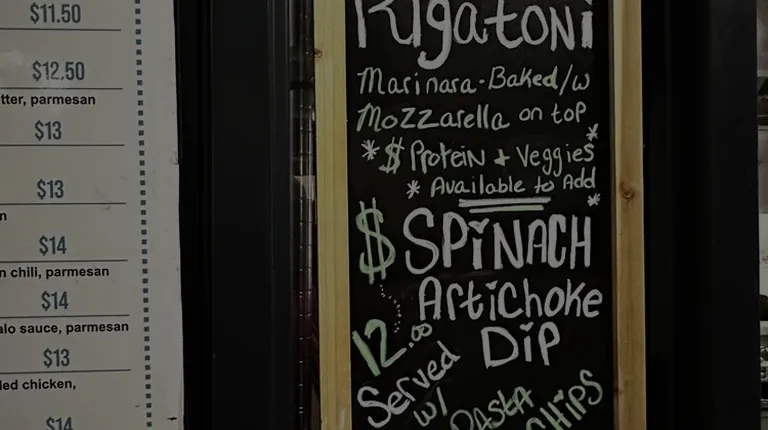 $11.50
$12.50
tter, parmesan
$13
$13
n
$14
n chili, parmesan
$14
alo sauce, parmesan
$13
led chicken,
$14
Rigatoni
Marinara-Baked/w
Mozzarella on top
*$ Protein + Veggies *
* Available to Add *
$ SPiNACH
Artichoke
12.00 DiP
Served
w/ PASTA
CHiPS